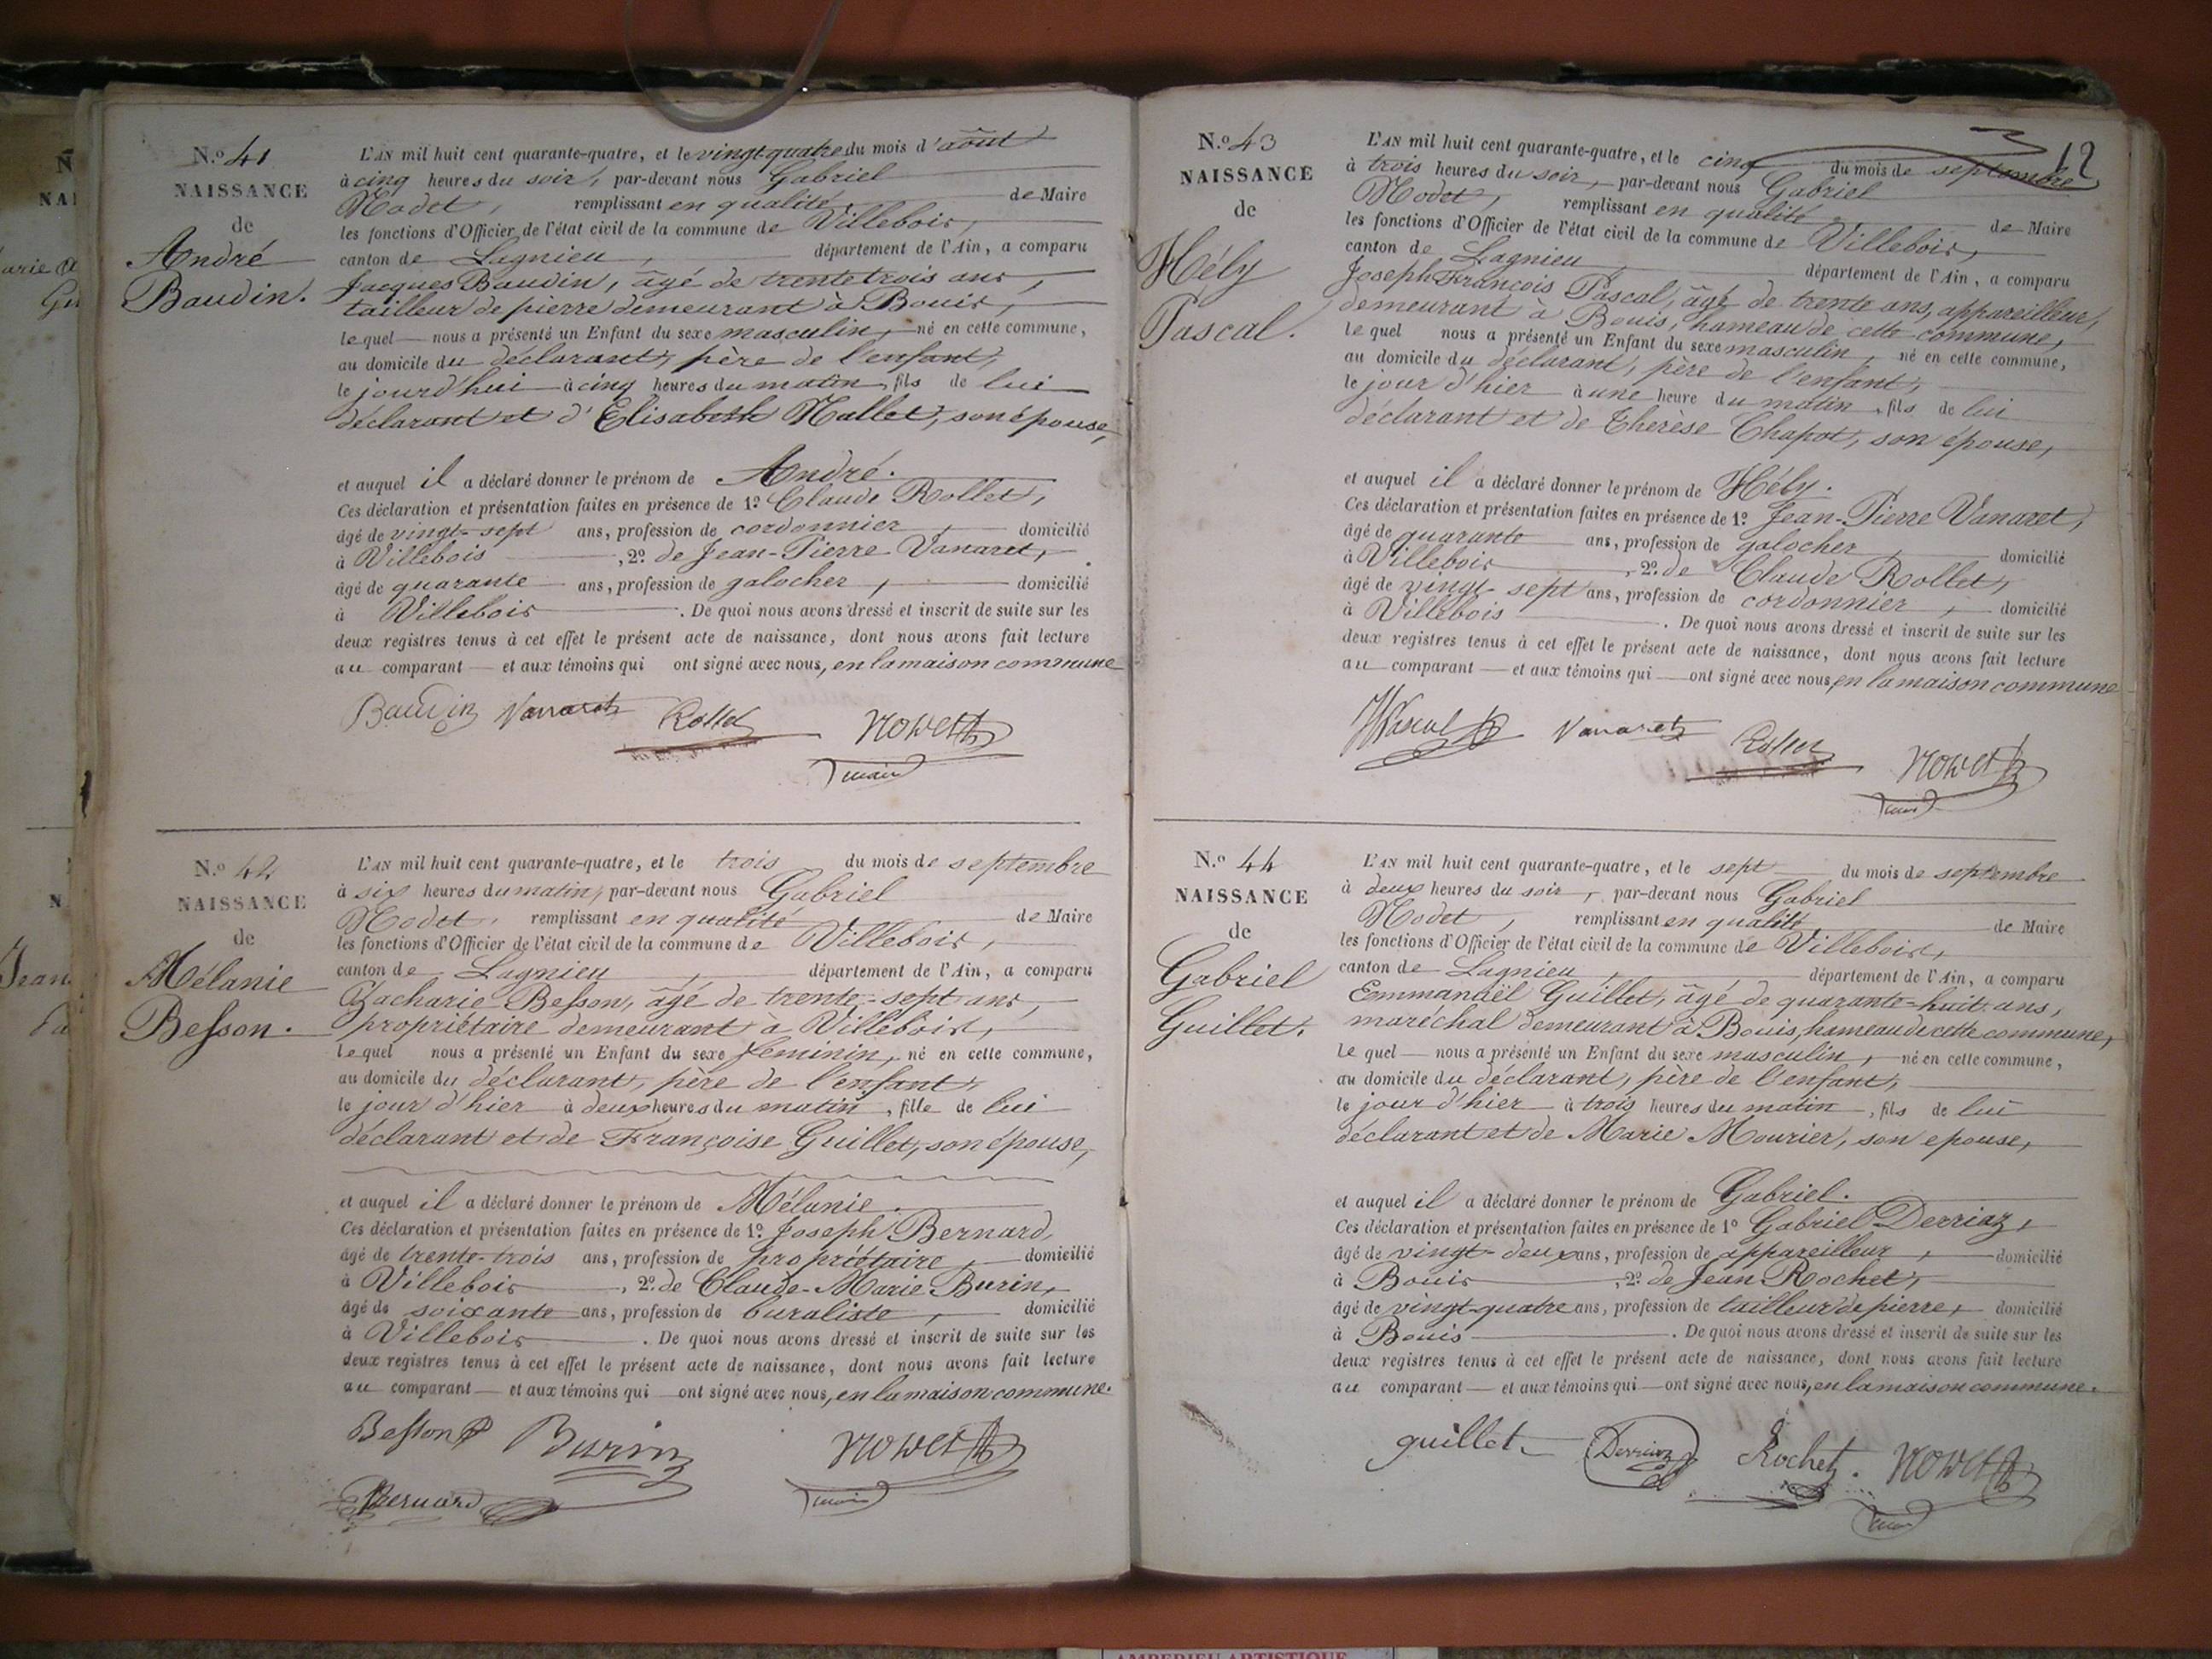 N.º 41
NAISSANCE
de
André
Baudin.
L'AN mil huit cent quarante-quatre, et le vingt-quatre du mois d'août
à cinq heures du soir, par-devant nous Gabriel
Modet, remplissant en qualité de Maire
les fonctions d'Officier de l'état civil de la commune de Villebois,
canton de Lagnieu, département de l'Ain, a comparu
Jacques Baudin, âgé de trente trois ans,
tailleur de pierre demeurant à Bouis,
lequel nous a présenté un Enfant du sexe masculin, né en cette commune,
au domicile du déclarant, père de l'enfant,
le jourd'hui à cinq heures du matin, fils de lui
déclarant et d'Elisabeth Mallet, son épouse,
et auquel il a déclaré donner le prénom de André.
Ces déclaration et présentation faites en présence de 1º Claude Rollet,
âgé de vingt-sept ans, profession de cordonnier, domicilié
à Villebois, 2º de Jean-Pierre Vanaret,
âgé de quarante ans, profession de galocher, domicilié
à Villebois. De quoi nous avons dressé et inscrit de suite sur les
deux registres tenus à cet effet le présent acte de naissance, dont nous avons fait lecture
au comparant et aux témoins qui ont signé avec nous, en la maison commune
Baudin Vanaret Rollet Modet
maire
N.º 42
NAISSANCE
de
Mélanie
Besson.
L'AN mil huit cent quarante-quatre, et le trois du mois de septembre
à six heures du matin, par-devant nous Gabriel
Modet, remplissant en qualité de Maire
les fonctions d'Officier de l'état civil de la commune de Villebois,
canton de Lagnieu, département de l'Ain, a comparu
Zacharie Besson, âgé de trente-sept ans,
propriétaire demeurant à Villebois,
lequel nous a présenté un Enfant du sexe féminin, né en cette commune,
au domicile du déclarant, père de l'enfant,
le jour d'hier à deux heures du matin, fille de lui
déclarant et de Françoise Guillet, son épouse,
et auquel il a déclaré donner le prénom de Mélanie.
Ces déclaration et présentation faites en présence de 1º Joseph Bernard,
âgé de trente-trois ans, profession de propriétaire, domicilié
à Villebois, 2º de Claude-Marie Burin,
âgé de soixante ans, profession de buraliste, domicilié
à Villebois. De quoi nous avons dressé et inscrit de suite sur les
deux registres tenus à cet effet le présent acte de naissance, dont nous avons fait lecture
au comparant et aux témoins qui ont signé avec nous, en la maison commune.
Besson Burin Modet
Bernard maire
12
N.º 43
NAISSANCE
de
Hély
Pascal.
L'AN mil huit cent quarante-quatre, et le cinq du mois de septembre
à trois heures du soir, par-devant nous Gabriel
Modet, remplissant en qualité de Maire
les fonctions d'Officier de l'état civil de la commune de Villebois,
canton de Lagnieu département de l'Ain, a comparu
Joseph-François Pascal, âgé de trente ans, appareilleur,
demeurant à Bouis, hameau de cette commune,
lequel nous a présenté un Enfant du sexe masculin, né en cette commune,
au domicile du déclarant, père de l'enfant,
le jour d'hier à une heure du matin, fils de lui
déclarant et de Thérèse Chapot, son épouse,
et auquel il a déclaré donner le prénom de Hély.
Ces déclaration et présentation faites en présence de 1º Jean-Pierre Vanaret,
âgé de quarante ans, profession de galocher, domicilié
à Villebois, 2º de Claude Rollet,
âgé de vingt-sept ans, profession de cordonnier, domicilié
à Villebois. De quoi nous avons dressé et inscrit de suite sur les
deux registres tenus à cet effet le présent acte de naissance, dont nous avons fait lecture
au comparant et aux témoins qui ont signé avec nous, en la maison commune
Pascal Vanaret Rollet Modet
maire
N.º 44
NAISSANCE
de
Gabriel
Guillet.
L'AN mil huit cent quarante-quatre, et le sept du mois de septembre
à deux heures du soir, par-devant nous Gabriel
Modet, remplissant en qualité de Maire
les fonctions d'Officier de l'état civil de la commune de Villebois,
canton de Lagnieu, département de l'Ain, a comparu
Emmanuël Guillet, âgé de quarante-huit ans,
maréchal demeurant à Bouis, hameau de cette commune,
Lequel nous a présenté un Enfant du sexe masculin, né en cette commune,
au domicile du déclarant, père de l'enfant,
le jour d'hier à trois heures du matin, fils de lui
déclarant et de Marie Mourier, son epouse,
et auquel il a déclaré donner le prénom de Gabriel.
Ces déclaration et présentation faites en présence de 1º Gabriel Derriaz,
âgé de vingt-deux ans, profession de appareilleur, domicilié
à Bouis, 2º de Jean Rochet,
âgé de vingt-quatre ans, profession de tailleur de pierre, domicilié
à Bouis. De quoi nous avons dressé et inscrit de suite sur les
deux registres tenus à cet effet le présent acte de naissance, dont nous avons fait lecture
au comparant et aux témoins qui ont signé avec nous, en la maison commune.
guillet Derriaz Rochet. Modet
maire